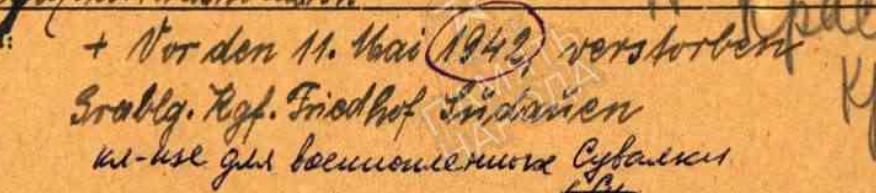 + Vor den 11. Mai 1942 verstorben
Grablg. Kgf. Friedhof Südauen
кл-ще для военнопленных Сувалки